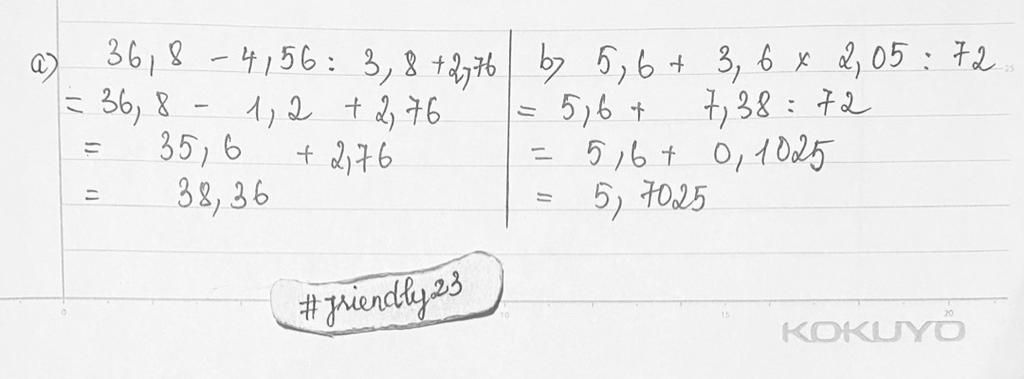 a) 36,8 - 4,56 : 3,8 + 2,76
= 36,8 - 1,2 + 2,76
= 35,6 + 2,76
= 38,36
b) 5,6 + 3,6 × 2,05 : 72
= 5,6 + 7,38 : 72
= 5,6 + 0,1025
= 5,7025
#friendly23
0 10 15 20 25
KOKUYO